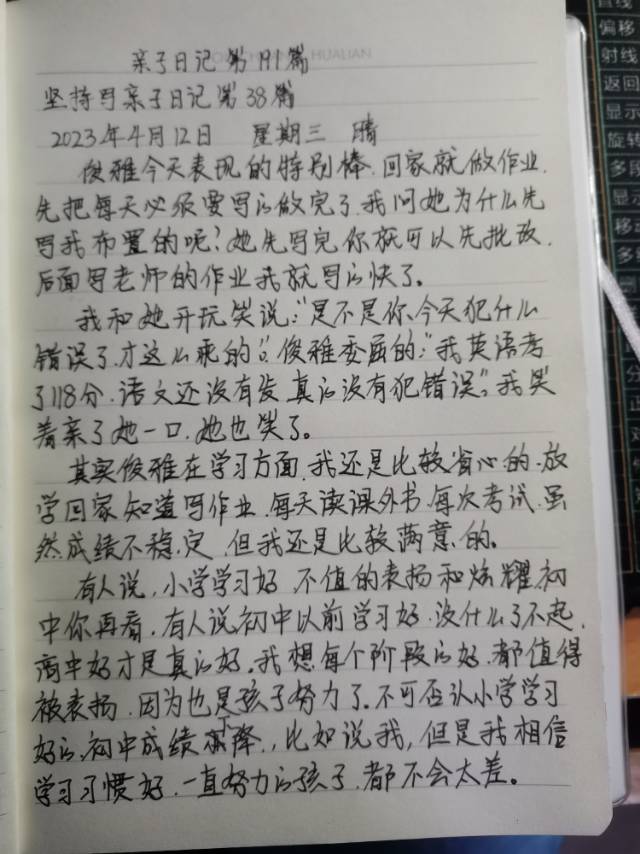 HUALIAN
亲子日记第191篇
坚持写亲子日记第38篇
2023年4月12日 星期三 晴
俊雅今天表现的特别棒.回家就做作业.
先把每天必须要写的做完了.我问她为什么先
写我布置的呢?她先写完你就可以先批改.
后面写老师的作业我就写的快了。
我和她开玩笑说:"是不是你、今天犯什么
错误了.才这么乖的"。俊雅委屈的:"我英语考
了118分.语文还没有发.真的没有犯错误".我笑
着亲了她一口.她也笑了。
其实俊雅在学习方面.我还是比较省心的.放
学回家知道写作业.每天读课外书.每次考试.虽
然成绩不稳定,但我还是比较满意的。
有人说,小学学习好,不值的表扬和炫耀初
中你再看.有人说初中以前学习好.没什么了不起.
高中好才是真的好.我想每个阶段的好.都值得
被表扬.因为也是孩子努力了.不可否认小学学习
好的.初中成绩下降.,比如说我,但是我相信
学习习惯好.一直努力的孩子.都不会太差。
直线
偏移
射线
返回
显示
旋转
多段
显示
移动